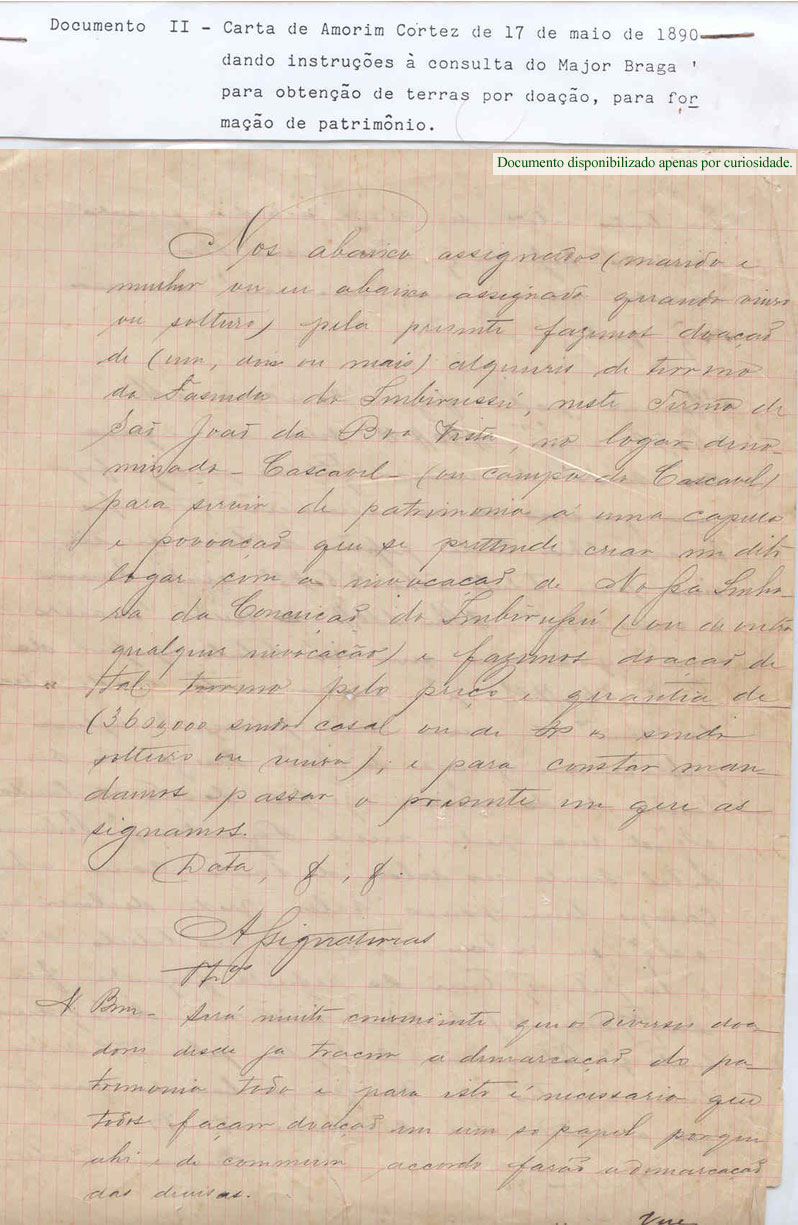 Documento II - Carta de Amorim Cortez de 17 de maio de 1890
dando instruções à consulta do Major Braga '
para obtenção de terras por doação, para for
mação de patrimônio.
Documento disponibilizado apenas por curiosidade.
Nos abaixo assignados (marido e
mulher ou eu abaixo assignado quando viuvo
ou solteiro) pela presente fazemos doação
de (um, dous ou mais) alqueires de terreno
da Fasenda do Imbirussú, neste Termo de
São João da Boa Vista, no logar deno-
minado - Cascavel - (ou campo do Cascavel)
para servir de patrimonio a uma capella
e povoação que se pretende criar no dito
logar com a invocação de Nossa Senho-
ra da Conceição do Imbirussú (ou outra
qualquer invocação) e fazemos doação de
tal terreno pelo preço e quantia de
(360$000 sendo casal ou de sendo
solteiro ou viuvo); e para constar man-
damos passar o presente em que as
signamos.
Data, &, &.
Assignaturas
N. Bem - Será muito conveniente que os diversos doa-
dores desde já tracem a demarcação do pa-
trimonio todo e para isto é necessario que
todos façam doação em um so papel porque
ahi e de commum accordo farão a demarcação
das diversas.